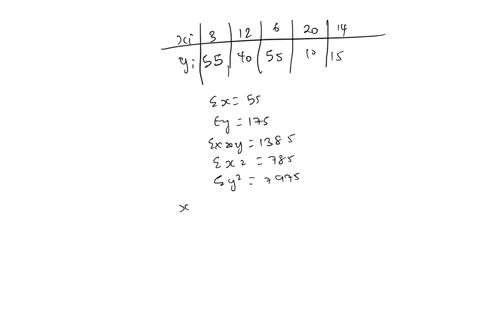 xi 3 12 6 20 14
yi 55 40 55 10 15
Σx = 55
Σy = 175
Σxxy = 1385
Σx² = 785
Σy² = 7975
x